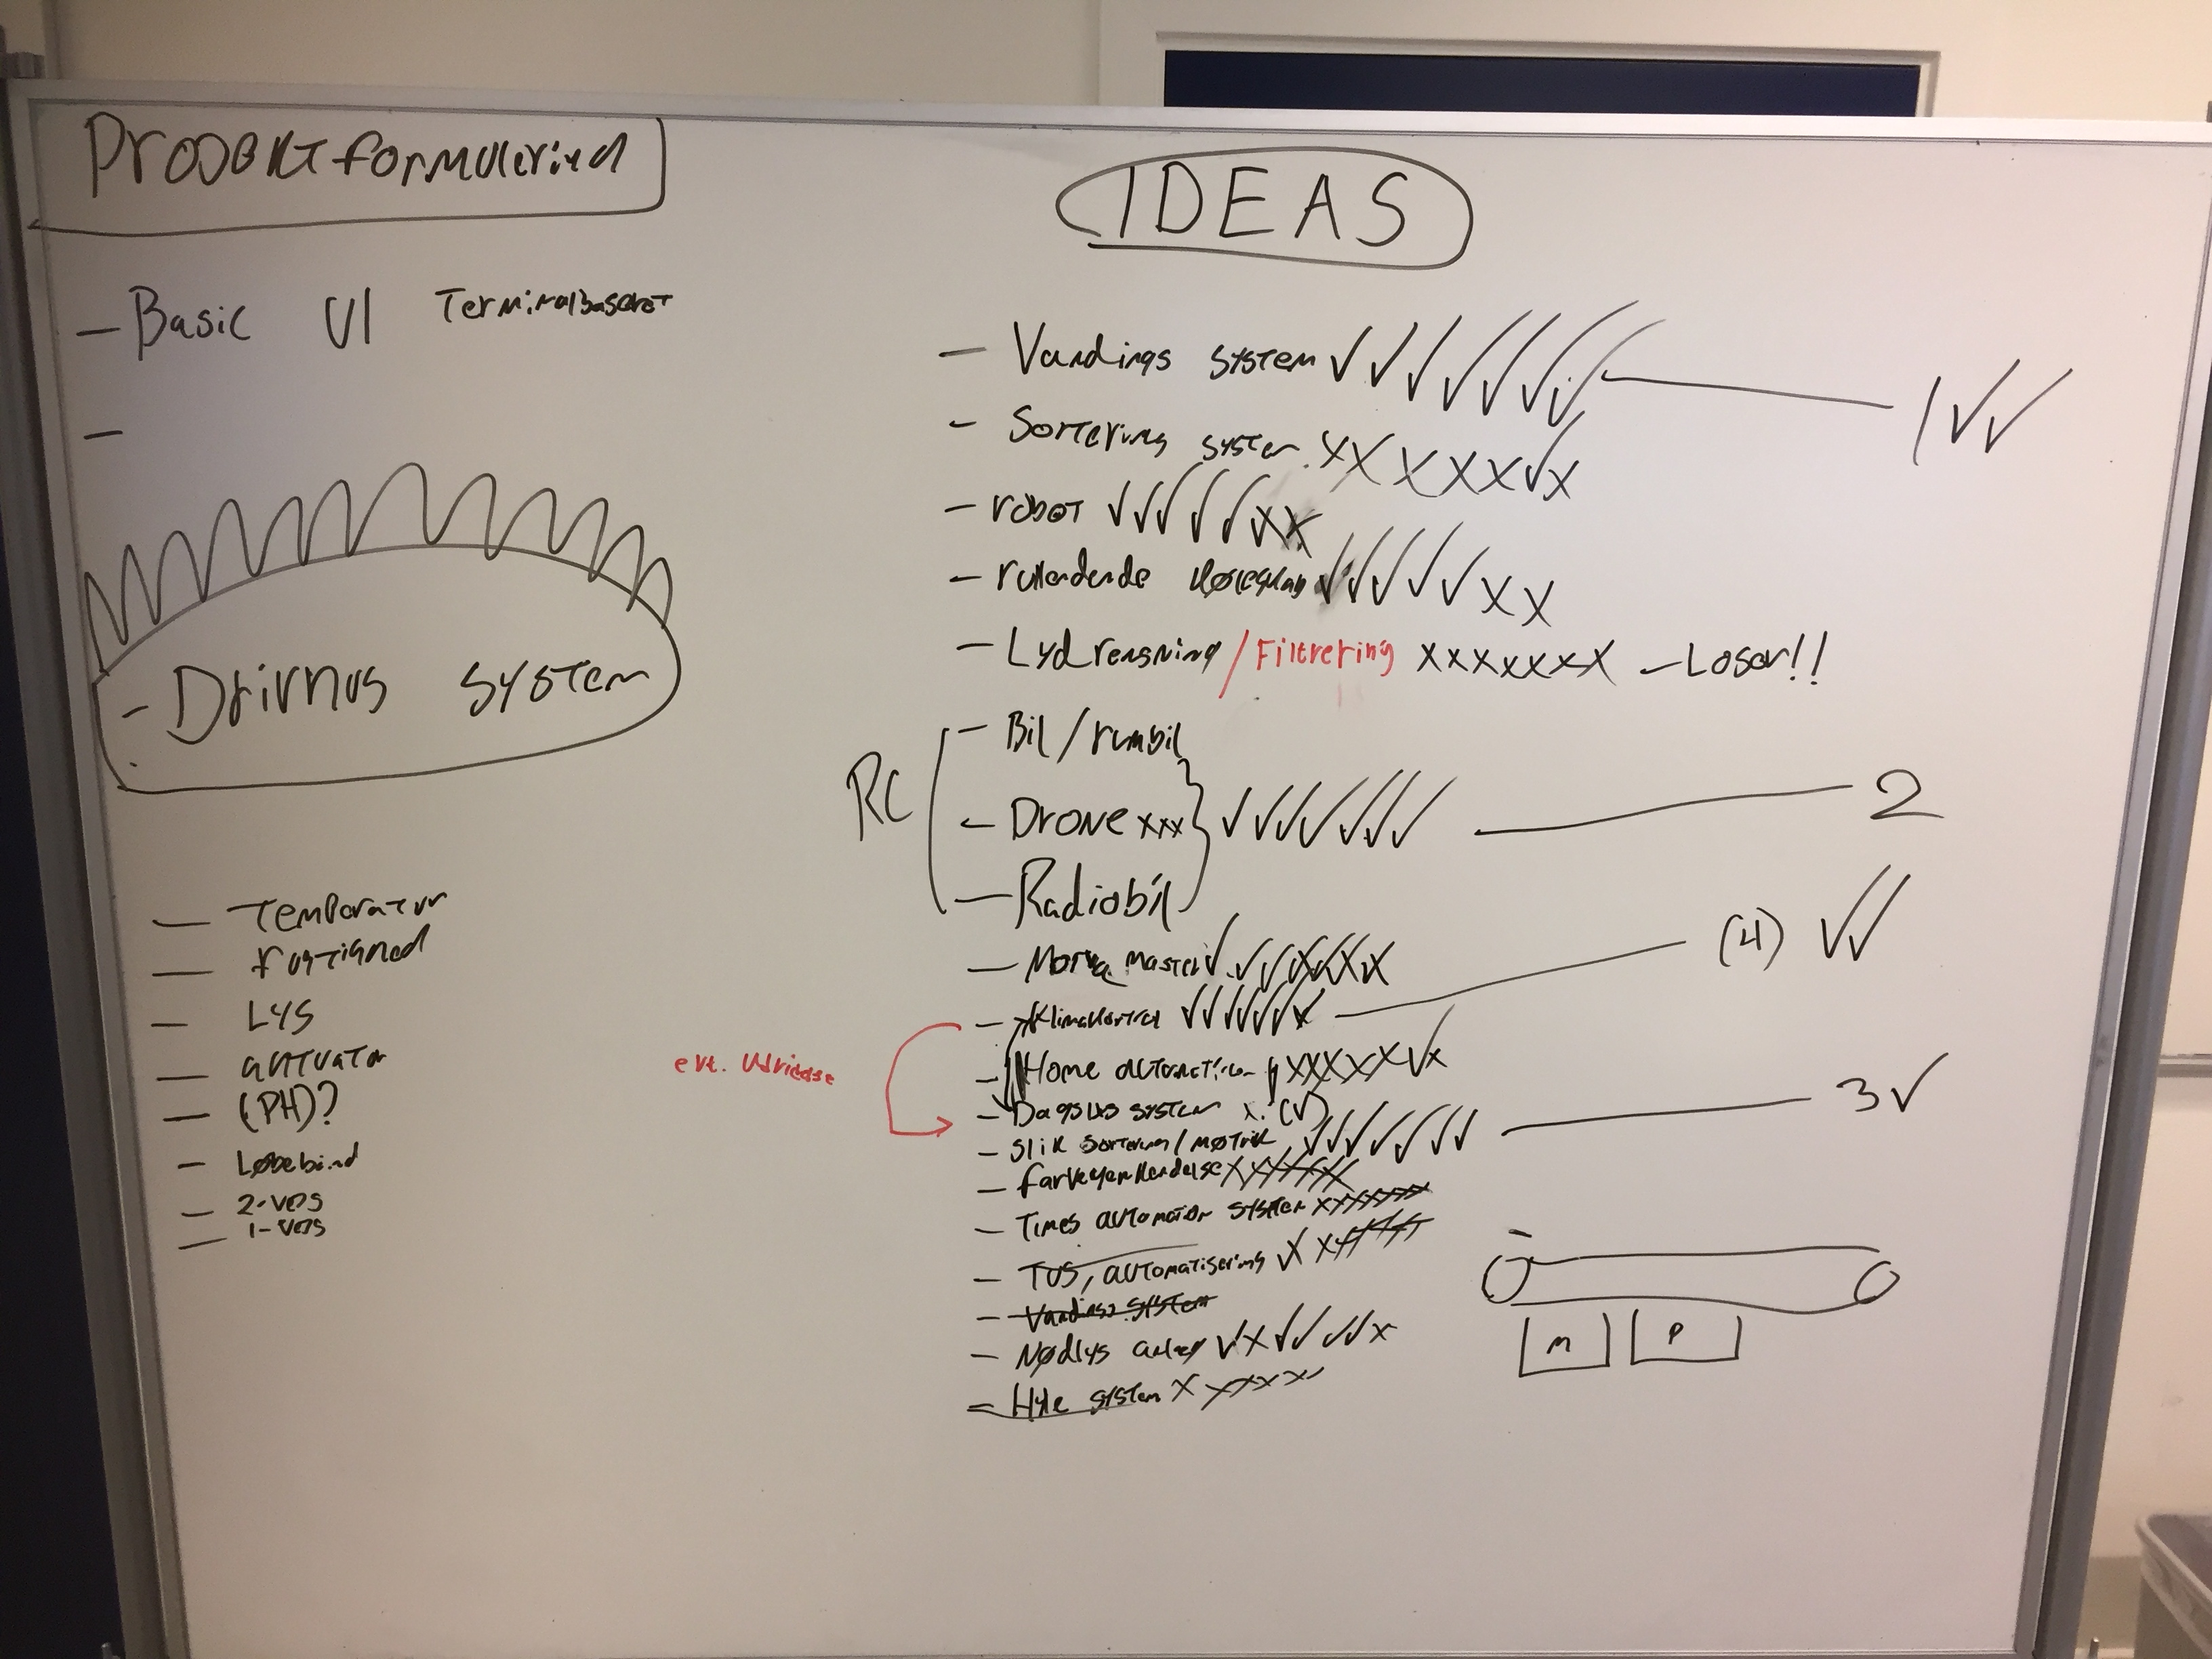 Projektformulering
- Basic UI Terminalbaseret
-
- Drivhus system
- Temperatur
- fugtighed
- Lys
- aktuator
- (PH)?
- Løbebånd
- 2-vejs
- 1-vejs
IDEAS
- Vandings system ✓✓✓✓✓✓✓ 1 ✓✓
- Sorterings system XXXXX✓X
- robot ✓✓✓✓✓XX
- rullende køleskab ✓✓✓✓✓XX
- Lydrensning / Filtrering XXXXXXX - Loser!!
RC
- Bil /
- Drone xxx ✓✓✓✓✓✓✓ 2
- Radiobil
- Master
- Klimakontrol ✓✓✓✓✓✓X (4) ✓✓
evt. Udvidelse
- Home automation
- Dagslys system x (✓)
- Slik Sortering / møtrik ✓✓✓✓✓✓✓ 3 ✓
- farvegenkendelse XXXXXXX
- Times automation system XXXXXXX
- TUS, automatisering
- Vandings system
- Nødlys ✓X✓✓✓✓X
- Hyle system
M P